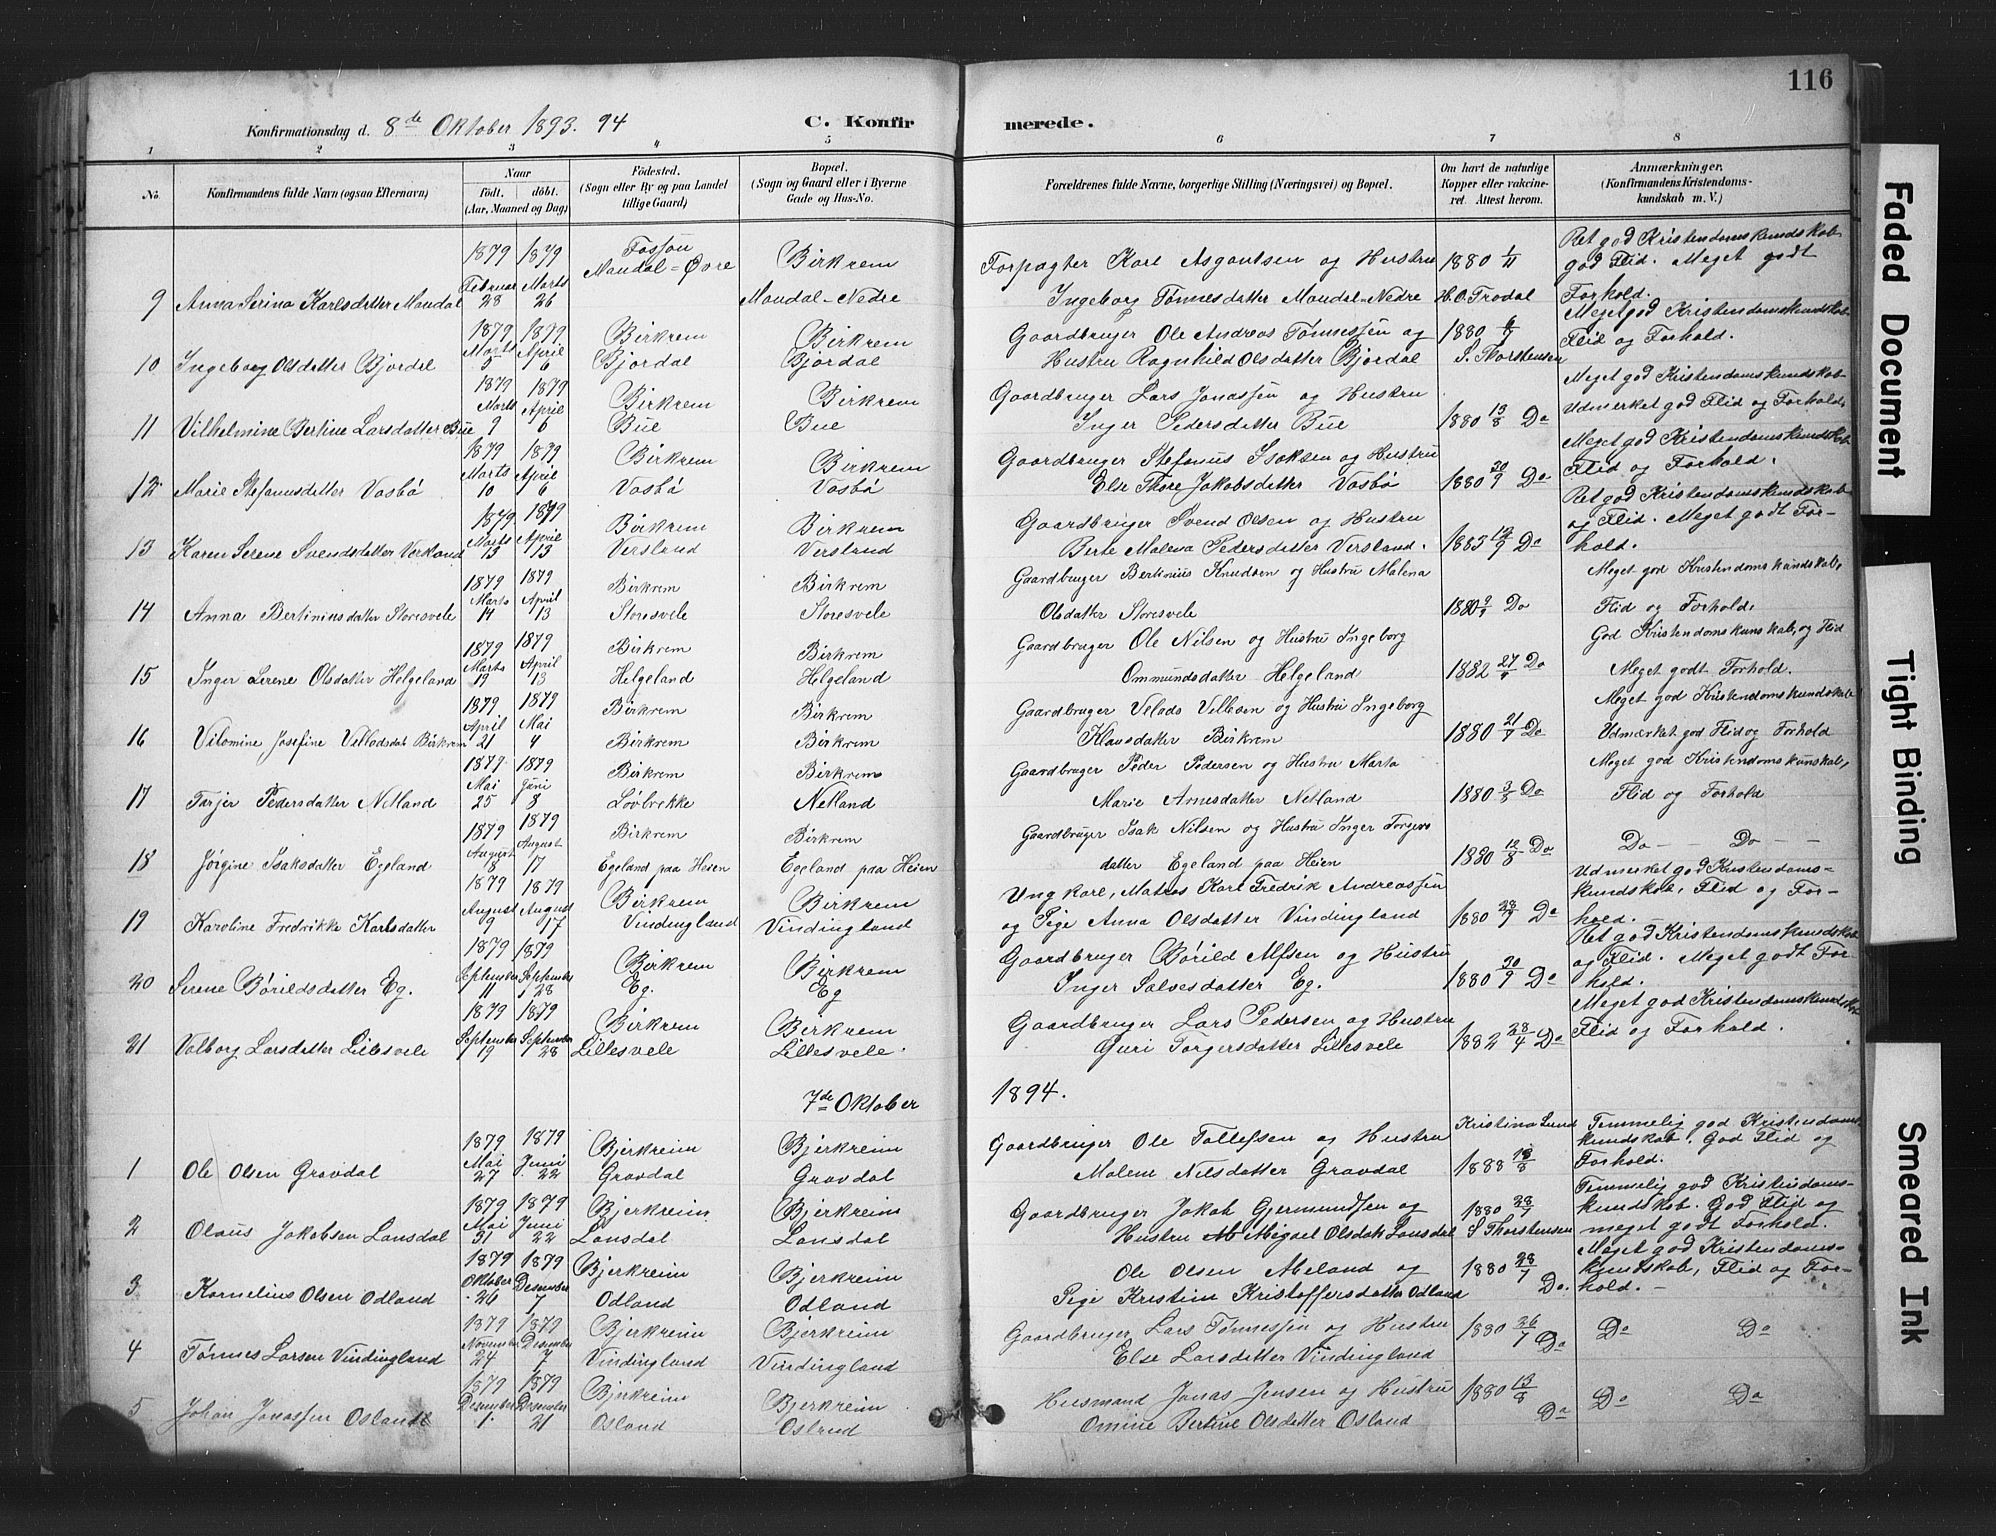 116
Konfirmationsdag d. 8de Oktober 1893. 94
C. Konfirmerede.
1 2 3 4 5 6 7 8
No. Konfirmandens fulde Navn (ogsaa Efternavn) Naar født. døbt. (Aar, Maaned og Dag) Fødested. (Sogn eller By og paa Landet tillige Gaard) Bopæl. (Sogn og Gaard eller i Byerne Gade og Hus-No. Forældrenes fulde Navne, borgerlige Stilling (Næringsvei) og Bopæl. Om havt de naturlige Kopper eller vakcineret. Attest herom. Anmærkninger. (Konfirmandens Kristendomskundskab m. V.)
1879 1879 Birkrem Forpagter Karl Asgautsen og Hustru 1880 1/11 Ret god Kristendomskundskab god Flid. Meget godt
9 Anna Serina Karlsdatter Maudal Februar 28 Marts 26 Maudal-Øvre Maudal-Nedre Ingeborg Tønnesdatter Maudal-Nedre H.O. Trodal Forhold.
1879 1879 Birkrem Birkrem Gaardbruger Ole Andreas Tønnessen og 1880 Meget god Kristendomskundskab
10 Ingeborg Olsdatter Bjordal Marts April 6 Bjordal Bjordal Hustru Ragnhild Olsdatter Bjordal S. Thorstensen Flid og Forhold.
1879 1879 Birkrem Birkrem Gaardbruger Lars Jonassen og Hustru Meget god Kristendomskundskab
11 Vilhelmine Bertine Larsdatter Bue Marts 9 April 6 Bue Bue Inger Pedersdatter Bue 1880 13/8 Do Udmerket god Flid og Forhold.
1879 1879 Birkrem Birkrem Gaardbruger Stefanus Isaksen og Hustru Meget god Kristendomskundskab
12 Marie Stefanusdatter Vasbø Marts 10 April 6 Vasbø Vasbø Else Thore Jakobsdatter Vasbø 1880 20/9 Do Flid og Forhold.
1879 1879 Birkrem Birkrem Gaardbruger Svend Olsen og Hustru Ret god Kristendomskundskab og Flid. Meget godt For-
13 Karen Serene Svendsdatter Marts 13 April 13 Versland Versland Berte Malena Pedersdatter Versland. 1883 12/9 Do hold.
1879 1879 Birkrem Birkrem Gaardbruger Bertinius Knudsen og Hustru Malena Meget god Kristendomskundskab,
14 Anna Bertiniusdatter Storesvele Marts 14 April 13 Storesvele Storesvele Olsdatter Storesvele 1880 Do Flid og Forhold.
1879 1879 Birkrem Birkrem Gaardbruger Ole Nilsen og Hustru Ingeborg God Kristendomskunskab, og Flid
15 Inger Serene Olsdatter Helgeland Marts 19 April 13 Helgeland Helgeland Ommundsdatter Helgeland 1882 Do Meget godt Forhold.
1879 1879 Birkrem Birkrem Gaardbruger Velads Villasen og Hustru Ingeborg Meget god Kristendomskundskab
16 Vilomine Josefine Villadsdat Birkrem April 21 Mai 4 Birkrem Birkrem Klausdatter Birkrem 1880 21/7 Do Udmærket god Flid og Forhold
1879 1879 Birkrem Birkrem Gaardbruger Peder Pedersen og Hustru Marta Meget god Kristendomskunskab,
17 Tarjer Pedersdatter Netland Mai 25 Juni 8 Løvbrekke Netland Marie Arnesdatter Netland 1880 3/8 Do Flid og Forhold
1879 1879 Birkrem Birkrem Gaardbruger Isak Nilsen og Hustru Inger Torgers Do Do
18 Jørgine Isaksdatter Egeland August 8 August 17 Egeland paa Heien Egeland paa Heien datter Egeland paa Heien 1880 12/8 Do
1879 1879 Birkrem Birkrem Ungkarl, Matros Karl Fredrik Andreassen Udmerket god Kristendoms-kundskab, Flid og For-
19 Karoline Fredrikke Karlsdatter August 9 August 17 Vindingland Vindingland og Pige Anna Olsdatter Vindingland 1880 Do hold.
1879 1879 Birkrem Birkrem Gaardbruger Børild Alfsen og Hustru Ret god Kristendomskundskab og Flid. Meget godt For-
20 Serene Børildsdatter Eg. September 11 September 28 Eg. Eg Inger Salvesdatter Eg. 1880 20/9 Do hold.
1879 1879 Birkrem Birkrem Gaardbruger Lars Pedersen og Hustru Meget god Kristendomskundskab
21 Valborg Larsdatter Lillesvele September 19 September 28 Lillesvele Lillesvele. Guri Torgersdatter Lillesvele 1882 28/4 Do Flid og Forhold.
7de Oktober 1894.
1879 1879 Bjerkreim Bjerkreim Gaardbruger Ole Tollefsen og Hustru Kristina Lund Temmelig god Kristendoms-kundskab. God Flid og
1 Ole Olsen Gravdal Mai 27 Juni 22 Gravdal Gravdal Malene Nilsdatter Gravdal 1888 Forhold.
1879 1879 Bjerkreim Bjerkreim Gaardbruger Jakob Gjermundsen og 1880 Temmelig god Kristendoms-kundskab. God Flid og
2 Olaus Jakobsen Lansdal Mai 31 Juni 22 Lansdal Lansdal Hustru Olsdat Lansdal S Thorstensen meget godt Forhold.
1879 1879 Bjerkreim Bjerkreim Ole Olsen Meland og 1880 28/7 Meget god Kristendoms-kundskab, Flid og For-
3 Kornelius Olsen Odland Oktober 26 Desember 7 Odland Odland Pige Kristine Kristoffersdatter Odland Do. hold.
1879 1879 Bjerkreim Bjerkreim Gaardbruger Lars Tønnessen og Hustru 1880 26/7 Do Do
4 Tønnes Larsen Vindingland November 24 Desember 7 Vindingland Vindingland Else Larsdatter Vindingland Do
1879 1879 Bjerkreim Bjerkreim Husmand Jonas Jensen og Hustru 1880 13/8 Do Do
5 Johan Jonassen Osland Desember 1. Desember 21 Osland Osland Omine Bertine Olsdatter Osland Do
Faded Document
Tight Binding
Smeared Ink